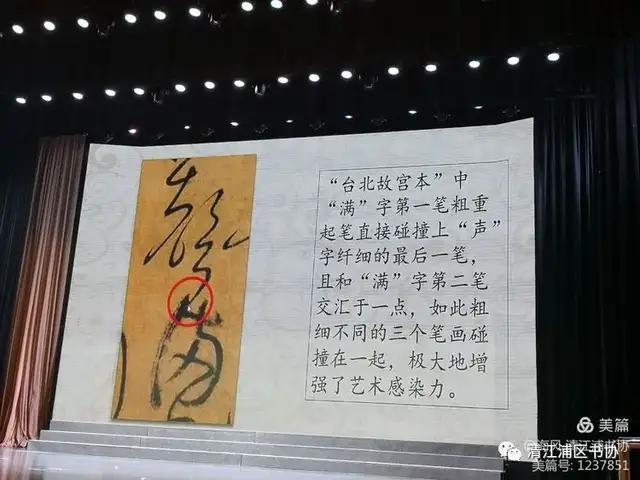 声
满
“台北故宫本”中
“满”字第一笔粗重
起笔直接碰撞上“声”
字纤细的最后一笔，
且和“满”字第二笔
交汇于一点，如此粗
细不同的三个笔画碰
撞在一起，极大地增
强了艺术感染力。
美篇
清江浦区书协
美篇号: 1237851